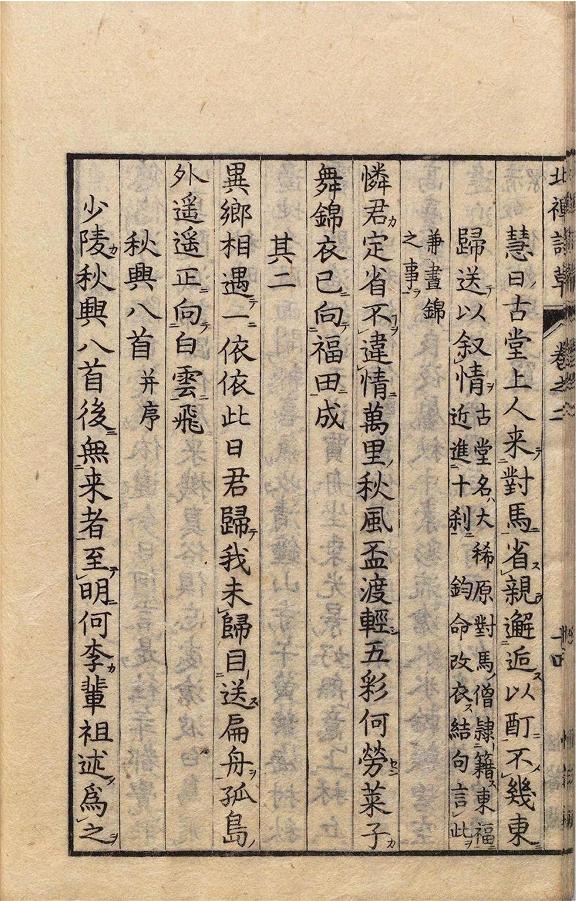 北禪詩草 卷之二
慧日古堂上人来對馬省親邂逅以酊不幾東
歸送以叙情 古堂名大稀原對馬僧隷籍東福
近進十刹 鈞命改衣結句言此
兼晝錦
之事
憐君定省不違情萬里秋風盃渡輕五彩何勞菜子
舞錦衣已向福田成
其二
異鄉相遇一依依此日君歸我未歸目送扁舟孤島
外遥遥正向白雲飛
秋興八首 并序
少陵秋興八首後無来者至明何李輩祖述為之